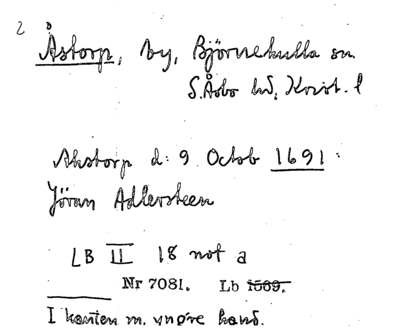 2
Åstorp, by, Björnekulla sn.
S. Åsbo hd, Krist. l
Ahstorp d: 9 Octob 1691:
Jöran Adlersteen
LB II 18 not a
Nr 7081. Lb 1569.
I kanten m. yngre hand.